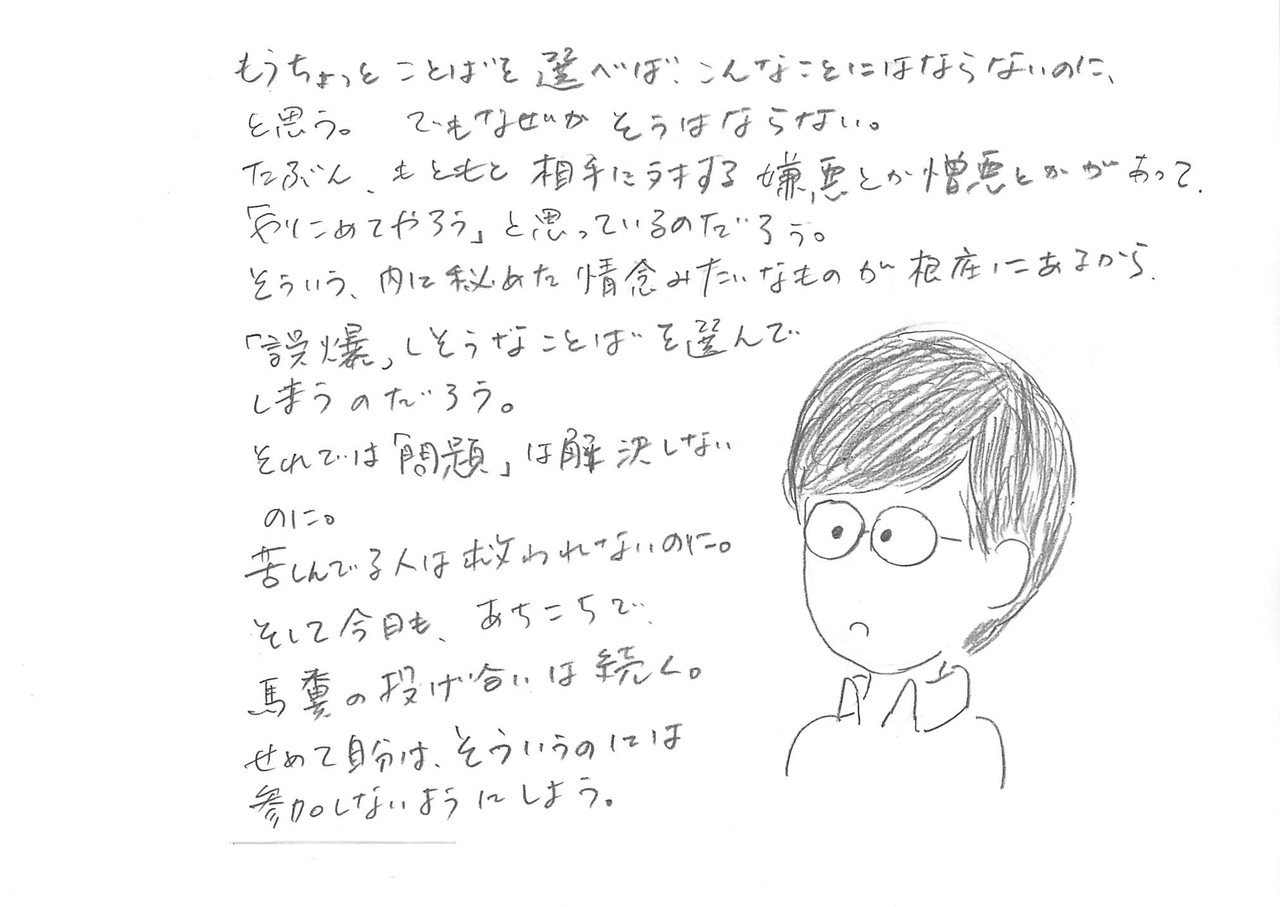 もうちょっと ことばを 選べば、こんなことにはならないのに、
と思う。 でもなぜか そうはならない。
たぶん、もともと 相手に対する 嫌悪とか憎悪とかがあって、
「やりこめてやろう」と思っているのだろう。
そういう、内に秘めた 情念みたいなものが 根底にあるから、
「誤爆」しそうなことばを選んで
しまうのだろう。
それでは「問題」は解決しない
のに。
苦しんでる人は救われないのに。
そして今日も、あちこちで、
馬糞の投げ合いは続く。
せめて自分は、そういうのには
参加しないようにしよう。